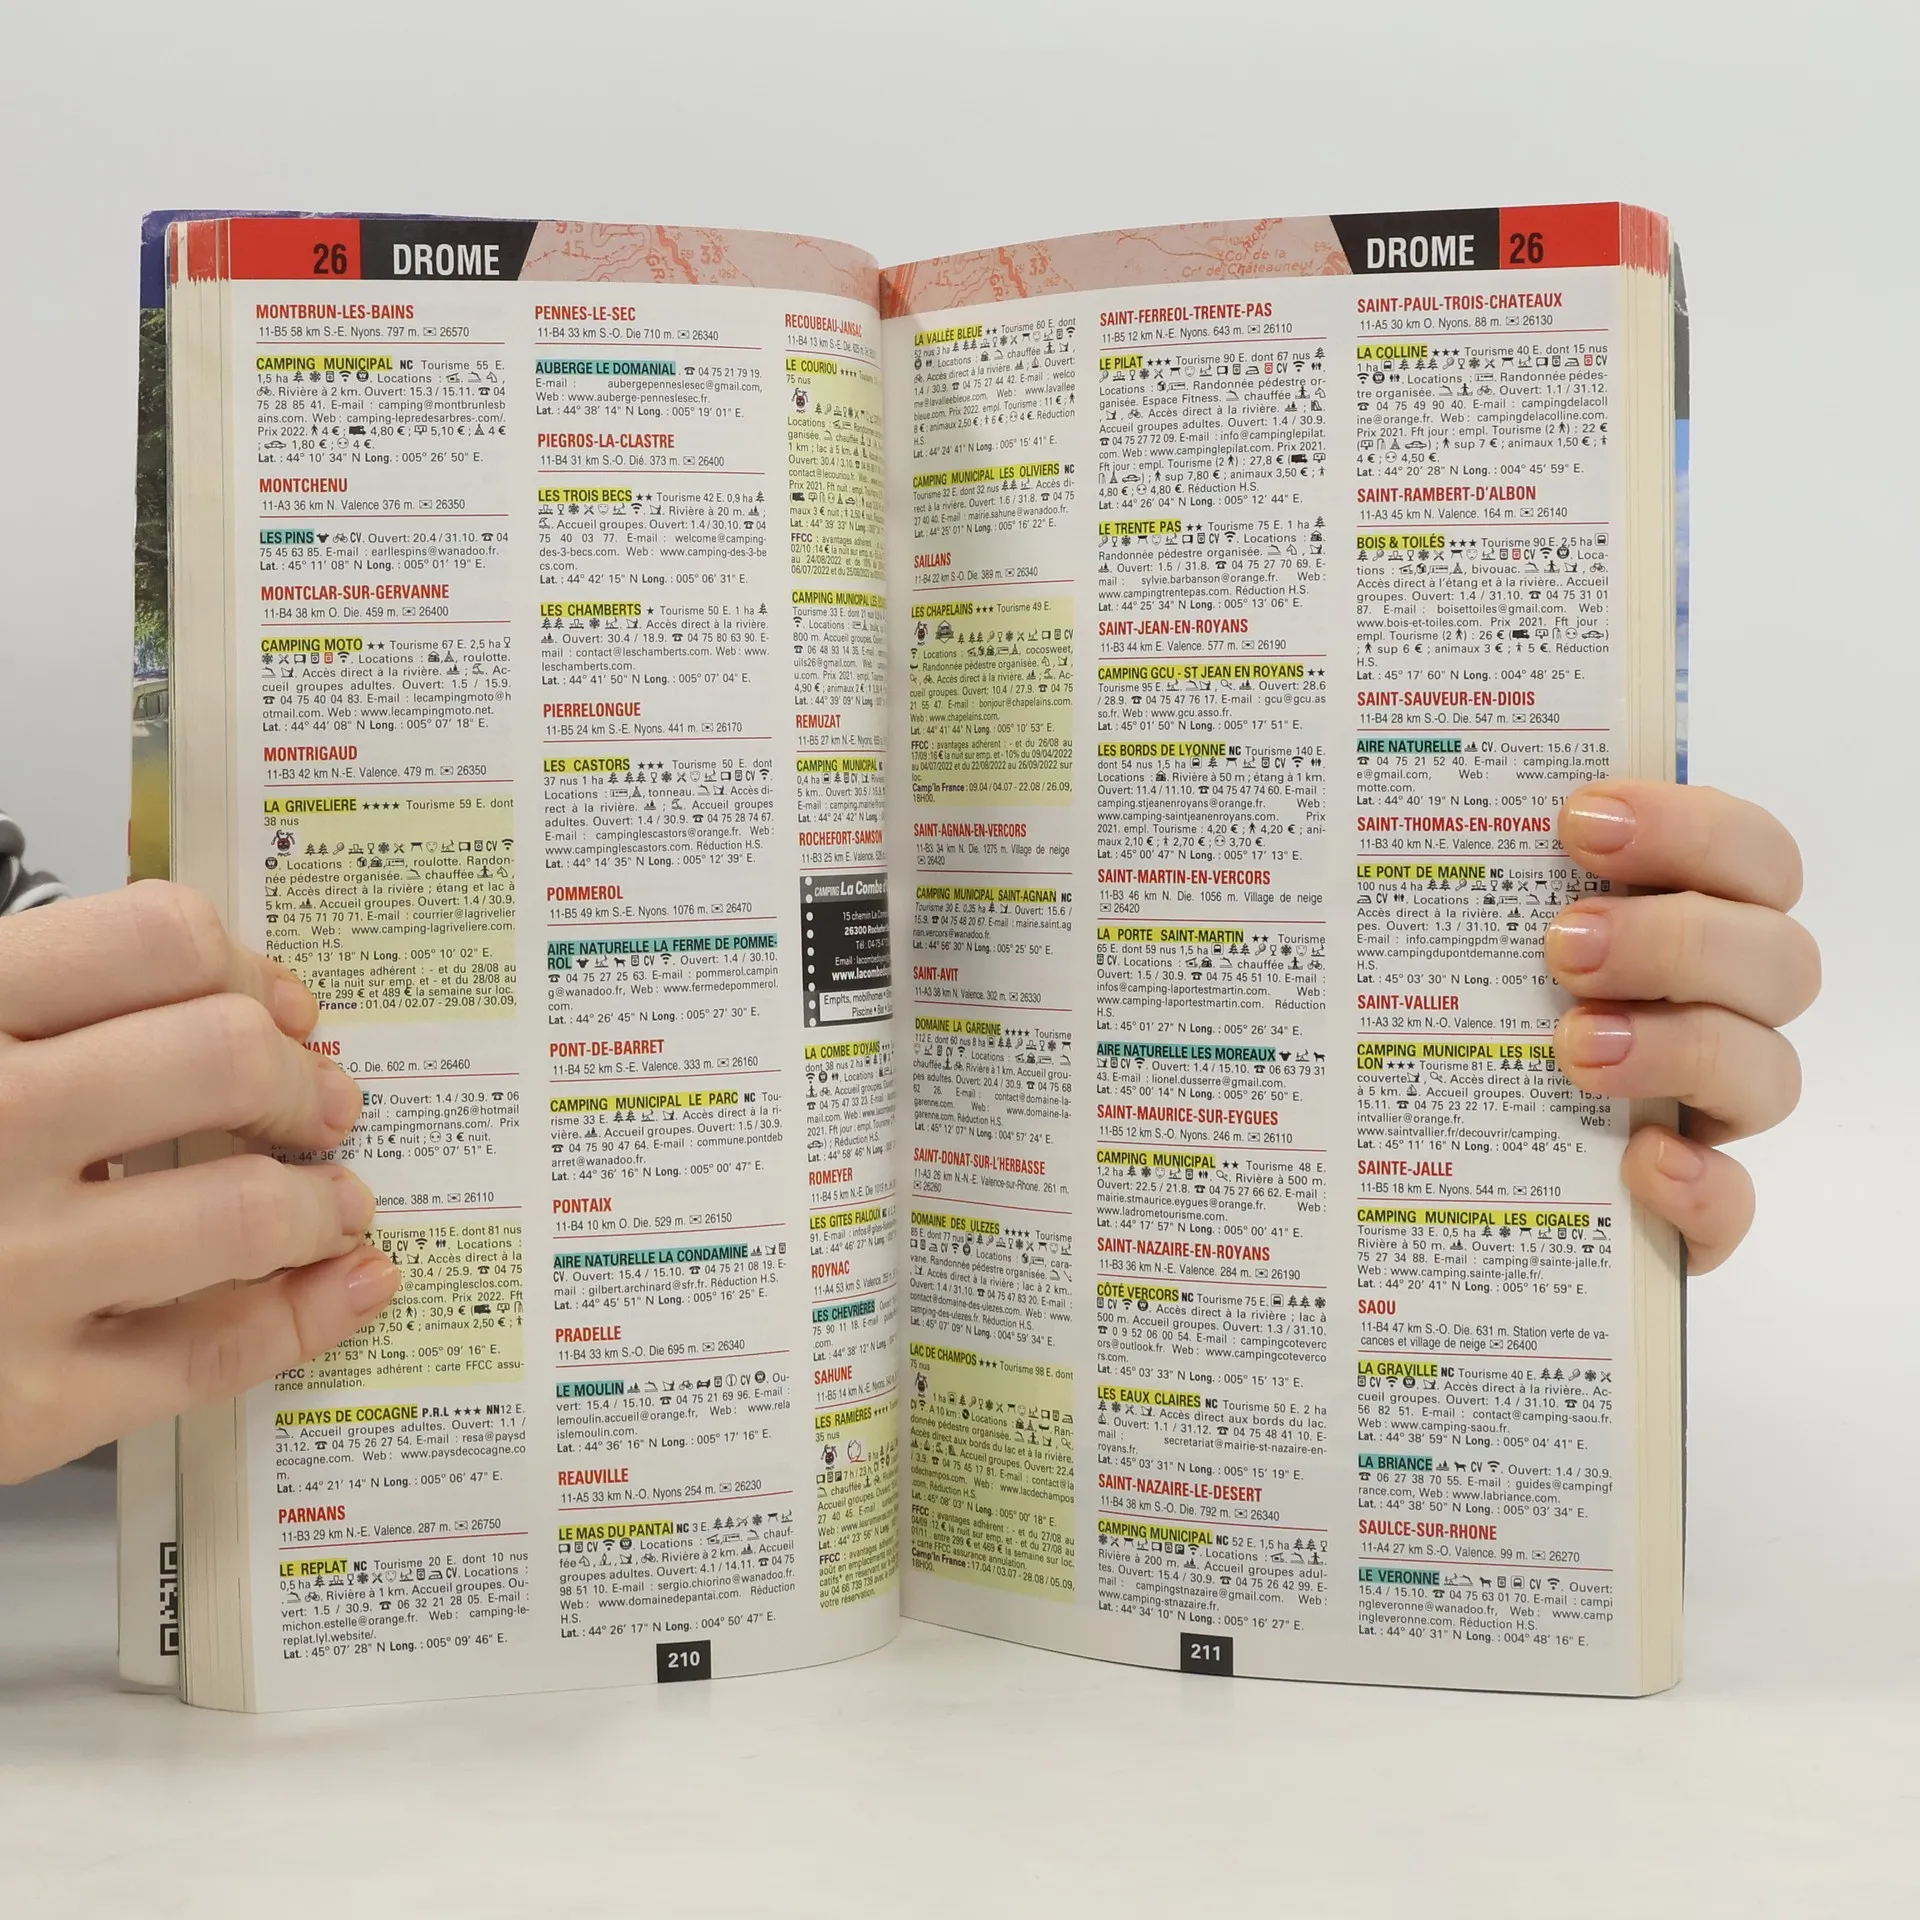 26 DROME
MONTBRUN-LES-BAINS
11-B5 58 km S.-E. Nyons. 797 m. 26570
CAMPING MUNICIPAL NC Tourisme 55 E.
1,5 ha Locations :
Rivière à 2 km. Ouvert: 15.3 / 15.11. 04
75 28 85 41. E-mail : camping@montbrunlesb
ains.com. Web : www.camping-lepredesarbres-.com/.
Prix 2022. 4 € ; 4,80 € ; 5,10 € ; 4 €
; 1,80 € ; 4 €.
Lat. : 44° 10' 34" N Long. : 005° 26' 50" E.
MONTCHENU
11-A3 36 km N. Valence 376 m. 26350
LES PINS CV. Ouvert: 20.4 / 31.10. 04
75 45 63 85. E-mail : earllespins@wanadoo.fr.
Lat. : 45° 11' 08" N Long. : 005° 01' 19" E.
MONTCLAR-SUR-GERVANNE
11-B4 38 km O. Die. 459 m. 26400
CAMPING MOTO ★★ Tourisme 67 E. 2,5 ha
Locations : roulotte.
Accès direct à la rivière. ; Ac-
cueil groupes adultes. Ouvert: 1.5 / 15.9.
04 75 40 04 83. E-mail : lecampingmoto@h
otmail.com. Web : www.lecampingmoto.net.
Lat. : 44° 44' 08" N Long. : 005° 07' 18" E.
MONTRIGAUD
11-B3 42 km N.-E. Valence. 479 m. 26350
LA GRIVELIERE ★★★★ Tourisme 59 E. dont
38 nus
Locations : roulotte. Randon-
née pédestre organisée. chauffée
Accès direct à la rivière ; étang et lac à
5 km. Accueil groupes. Ouvert: 1.4 / 30.9.
04 75 71 70 71. E-mail : courrier@lagrivelier
e.com. Web : www.camping-lagriveliere.com.
Réduction H.S.
45° 13' 18" N Long. : 005° 10' 02" E.
: avantages adhérent : - et du 28/08 au
€ la nuit sur emp. et - et du 28/08 au
entre 299 € et 489 € la semaine sur loc.
France : 01.04 / 02.07 - 29.08 / 30.09,
NANS
.-O. Die. 602 m. 26460
CV. Ouvert: 1.4 / 30.9. 06
mail : camping.gn26@hotmail
www.campingmornans.com/. Prix
nuit ; 5 € nuit ; 3 € nuit.
44° 36' 26" N Long. : 005° 07' 51" E.
alence. 388 m. 26110
★ Tourisme 115 E. dont 81 nus
CV Locations :
Accès direct à la
30.4 / 25.9. 04 75
@campinglesclos.com.
esclos.com. Prix 2022. Fft
(2 ) : 30,9 €
sup 7,50 € ; animaux 2,50 € ;
uction H.S.
21' 53" N Long. : 005° 09' 16" E.
FFCC : avantages adhérent : carte FFCC assu-
rance annulation.
AU PAYS DE COCAGNE P.R.L ★★★ NN12 E.
Accueil groupes adultes. Ouvert: 1.1 /
31.12. 04 75 26 27 54. E-mail : resa@paysd
ecocagne.com. Web : www.paysdecocagne.co
m.
Lat. : 44° 21' 14" N Long. : 005° 06' 47" E.
PARNANS
11-B3 29 km N.-E. Valence. 287 m. 26750
LE REPLAT NC Tourisme 20 E. dont 10 nus
0,5 ha CV. Locations :
Rivière à 1 km. Accueil groupes. Ou-
vert: 1.5 / 30.9. 06 32 21 28 05. E-mail :
michon.estelle@orange.fr. Web : camping-le-
replat.lyl.website/.
Lat. : 45° 07' 28" N Long. : 005° 09' 46" E.
PENNES-LE-SEC
11-B4 33 km S.-O. Die 710 m. 26340
AUBERGE LE DOMANIAL . 04 75 21 79 19.
E-mail : aubergepenneslesec@gmail.com,
Web : www.auberge-penneslesec.fr.
Lat. : 44° 38' 14" N Long. : 005° 19' 01" E.
PIEGROS-LA-CLASTRE
11-B4 31 km S.-O. Dié. 373 m. 26400
LES TROIS BECS ★★ Tourisme 42 E. 0,9 ha
Rivière à 20 m. ;
Accueil groupes. Ouvert: 1.4 / 30.10. 04
75 40 03 77. E-mail : welcome@camping-
des-3-becs.com. Web : www.camping-des-3-be
cs.com.
Lat. : 44° 42' 15" N Long. : 005° 06' 31" E.
LES CHAMBERTS ★ Tourisme 50 E. 1 ha
Accès direct à la rivière.
Ouvert: 30.4 / 18.9. 04 75 80 63 90. E-
mail : contact@leschamberts.com. Web : www.
leschamberts.com.
Lat. : 44° 41' 50" N Long. : 005° 07' 04" E.
PIERRELONGUE
11-B5 24 km S.-E. Nyons. 441 m. 26170
LES CASTORS ★★ Tourisme 50 E. dont
37 nus 1 ha CV
Locations : tonneau. Accès di-
rect à la rivière. ; Accueil groupes
adultes. Ouvert: 1.4 / 30.9. 04 75 28 74 67.
E-mail : campinglescastors@orange.fr. Web :
www.campinglescastors.com. Réduction H.S.
Lat. : 44° 14' 35" N Long. : 005° 12' 39" E.
POMMEROL
11-B5 49 km S.-E. Nyons. 1076 m. 26470
AIRE NATURELLE LA FERME DE POMME-
ROL CV Ouvert: 1.4 / 30.10.
04 75 27 25 63. E-mail : pommerol.campin
g@wanadoo.fr, Web : www.fermedepommerol.
com.
Lat. : 44° 26' 45" N Long. : 005° 27' 30" E.
PONT-DE-BARRET
11-B4 52 km S.-E. Valence. 333 m. 26160
CAMPING MUNICIPAL LE PARC NC Tou-
risme 33 E. Accès direct à la ri-
vière. Accueil groupes. Ouvert: 1.5 / 30.9.
04 75 90 47 64. E-mail : commune.pontdeb
arret@wanadoo.fr.
Lat. : 44° 36' 16" N Long. : 005° 00' 47" E.
PONTAIX
11-B4 10 km O. Die. 529 m. 26150
AIRE NATURELLE LA CONDAMINE
CV. Ouvert: 15.4 / 15.10. 04 75 21 08 19. E-
mail : gilbert.archinard@sfr.fr. Réduction H.S.
Lat. : 44° 45' 51" N Long. : 005° 16' 25" E.
PRADELLE
11-B4 33 km S.-O. Die 695 m. 26340
LE MOULIN CV Ou-
vert: 15.4 / 15.10. 04 75 21 69 96. E-mail :
lemoulin.accueil@orange.fr, Web : www.rela
islemoulin.com.
Lat. : 44° 36' 16" N Long. : 005° 17' 16" E.
REAUVILLE
11-A5 33 km N.-O. Nyons 254 m. 26230
LE MAS DU PANTAI NC 3 E.
CV Locations : chauf-
fée Rivière à 2 km. Accueil
groupes adultes. Ouvert: 4.1 / 14.11. 04 75
98 51 10. E-mail : sergio.chiorino@wanadoo.fr.
Web : www.domainedepantai.com. Réduction
H.S.
Lat. : 44° 26' 17" N Long. : 004° 50' 47" E.
RECOUBEAU-JANSAC
11-B4 13 km S.-E. Die.
LE COURIOU ★★★★
75 nus
Locations :
ganisée. chauffée
1 km ; lac à 5 km.
Ouvert: 30.4 / 3.10.
contact@lecouriou.fr.
Prix 2021. Fft nuit :
CAMPING MUNICIPAL
Tourisme 33 E. dont 21 nus
800 m. Accueil groupes.
06 48 93 14 35.
REMUZAT
11-B5 27 km N.-E. Nyons.
CAMPING MUNICIPAL
0,4 ha CV
ROCHEFORT-SAMSON
11-B3 25 km E. Valence.
CAMPING La Combe
15 chemin
26300 Rochefort
www.lacombed
Emplts, mobilhomes
Piscine • Bar
LA COMBE D'OYANS ★★★
dont 38 nus 2 ha
ROMEYER
11-B4 5 km N.-E. Die
LES GITES FIALOUX
Lat. : 44° 46' 27" N Long.
ROYNAC
11-A4 53 km S. Valence.
LES CHEVRIÈRES
75 90 11 18. E-mail :
.com.
Lat. : 44° 38' 12" N Long.
SAHUNE
11-B5 14 km N.-E. Nyons.
LES RAMIÈRES ★★★★
35 nus
votre réservation.
210
DROME 26
LA VALLÉE BLEUE ★★ Tourisme 60 E. dont
52 nus 3 ha
Locations : chauffée
Accès direct à la rivière. ; Ouvert:
1.4 / 30.9. 04 75 27 44 42. E-mail : welco
me@lavalleebleue.com. Web : www.lavallee
bleue.com. Prix 2022. empl. Tourisme : 11 € ;
8 € ; animaux 2,50 € ; 6 € ; 4 €. Réduction
H.S.
Lat. : 44° 24' 41" N Long. : 005° 15' 41" E.
CAMPING MUNICIPAL LES OLIVIERS NC
Tourisme 32 E. dont 32 nus Accès di-
rect à la rivière. Ouvert: 1.6 / 31.8. 04 75
27 40 40. E-mail : mairie.sahune@wanadoo.fr.
Lat. : 44° 25' 01" N Long. : 005° 16' 22" E.
SAILLANS
11-B4 22 km S.-O. Die. 389 m. 26340
LES CHAPELAINS ★★★ Tourisme 49 E.
CV
Locations : cocosweet,
Randonnée pédestre organisée.
Accès direct à la rivière. ; Ac-
cueil groupes. Ouvert: 10.4 / 27.9. 04 75
21 55 47. E-mail : bonjour@chapelains.com.
Web : www.chapelains.com.
Lat. : 44° 41' 44" N Long. : 005° 10' 53" E.
FFCC : avantages adhérent : - et du 26/08 au
17/09 :16 € la nuit sur emp. et - 10% du 09/04/2022
au 04/07/2022 et du 22/08/2022 au 26/09/2022 sur
loc.
Camp'In France : 09.04 / 04.07 - 22.08 / 26.09,
18H00.
SAINT-AGNAN-EN-VERCORS
11-B3 34 km N. Die. 1275 m. Village de neige
26420
CAMPING MUNICIPAL SAINT-AGNAN NC
Tourisme 30 E. 0,35 ha Ouvert: 15.6 /
15.9. 04 75 48 20 67. E-mail : mairie.saint.ag
nan.vercors@wanadoo.fr.
Lat. : 44° 56' 30" N Long. : 005° 25' 50" E.
SAINT-AVIT
11-A3 38 km N. Valence. 302 m. 26330
DOMAINE LA GARENNE ★★★★ Tourisme
112 E. dont 60 nus 8 ha
CV Locations :
chauffée Rivière à 1 km. Accueil grou-
pes adultes. Ouvert: 20.4 / 30.9. 04 75 68
62 26. E-mail : contact@domaine-la-
garenne.com. Web : www.domaine-la-
garenne.com. Réduction H.S.
Lat. : 45° 12' 07" N Long. : 004° 57' 24" E.
SAINT-DONAT-SUR-L'HERBASSE
11-A3 26 km N.-N.-E. Valence-sur-Rhone. 261 m.
26260
DOMAINE DES ULEZES ★★★★ Tourisme
85 E. dont 77 nus
CV Locations : cara-
vane. Randonnée pédestre organisée.
Accès direct à la rivière ; lac à 2 km.
Ouvert: 1.4 / 31.10. 04 75 47 83 20. E-mail :
contact@domaine-des-ulezes.com. Web : www.
camping-des-ulezes.fr. Réduction H.S.
Lat. : 45° 07' 09" N Long. : 004° 59' 34" E.
LAC DE CHAMPOS ★★★ Tourisme 98 E. dont
75 nus
1 ha
CV A 10 km : Locations : Ran-
donnée pédestre organisée.
Accès direct aux bords du lac et à la rivière.
Accueil groupes. Ouvert: 22.4
/ 3.9. 04 75 45 17 81. E-mail : contact@la
cdechampos.com. Web : www.lacdechampos
.com. Réduction H.S.
Lat. : 45° 08' 03" N Long. : 005° 00' 18" E.
FFCC : avantages adhérent : - et du 27/08 au
04/09 :12 € la nuit sur emp. et - et du 27/08 au
01/11 : entre 299 € et 469 € la semaine sur loc.
+ carte FFCC assurance annulation.
Camp'In France : 17.04 / 03.07 - 28.08 / 05.09,
18H00.
SAINT-FERREOL-TRENTE-PAS
11-B5 12 km N.-E. Nyons. 643 m. 26110
LE PILAT ★★★ Tourisme 90 E. dont 67 nus
CV
Locations : Randonnée pédestre or-
ganisée. Espace Fitness. chauffée
Accès direct à la rivière. ;
Accueil groupes adultes. Ouvert: 1.4 / 30.9.
04 75 27 72 09. E-mail : info@campinglepilat.
com. Web : www.campinglepilat.com. Prix 2021.
Fft jour : empl. Tourisme (2 ) : 27,8 €
; sup 7,80 € ; animaux 3,50 € ;
4,80 € ; 4,80 €. Réduction H.S.
Lat. : 44° 26' 04" N Long. : 005° 12' 44" E.
LE TRENTE PAS ★★ Tourisme 75 E. 1 ha
Locations :
Randonnée pédestre organisée.
Ouvert: 1.5 / 31.8. 04 75 27 70 69. E-
mail : sylvie.barbanson@orange.fr. Web :
www.campingtrentepas.com. Réduction H.S.
Lat. : 44° 25' 34" N Long. : 005° 13' 06" E.
SAINT-JEAN-EN-ROYANS
11-B3 44 km E. Valence. 577 m. 26190
CAMPING GCU - ST JEAN EN ROYANS ★★
Tourisme 95 E. Ouvert: 28.6
/ 28.9. 04 75 47 76 17. E-mail : gcu@gcu.as
so.fr. Web : www.gcu.asso.fr.
Lat. : 45° 01' 50" N Long. : 005° 17' 51" E.
LES BORDS DE LYONNE NC Tourisme 140 E.
dont 54 nus 1,5 ha CV
Locations : Rivière à 50 m ; étang à 1 km.
Accueil groupes. Ouvert:
11.4 / 11.10. 04 75 47 74 60. E-mail :
camping.stjeanenroyans@orange.fr. Web :
www.camping-saintjeanenroyans.com. Prix
2021. empl. Tourisme : 4,20 € ; 4,20 € ; ani-
maux 2,10 € ; 2,70 € ; 3,70 €.
Lat. : 45° 00' 47" N Long. : 005° 17' 13" E.
SAINT-MARTIN-EN-VERCORS
11-B3 46 km N. Die. 1056 m. Village de neige
26420
LA PORTE SAINT-MARTIN ★★ Tourisme
65 E. dont 59 nus 1,5 ha
CV. Locations : chauffée
Ouvert: 1.5 / 30.9. 04 75 45 51 10. E-mail :
infos@camping-laportestmartin.com. Web :
www.camping-laportestmartin.com. Réduction
H.S.
Lat. : 45° 01' 27" N Long. : 005° 26' 34" E.
AIRE NATURELLE LES MOREAUX
CV Ouvert: 1.4 / 15.10. 06 63 79 31
43. E-mail : lionel.dusserre@gmail.com.
Lat. : 45° 00' 14" N Long. : 005° 26' 50" E.
SAINT-MAURICE-SUR-EYGUES
11-B5 12 km S.-O. Nyons. 246 m. 26110
CAMPING MUNICIPAL ★★ Tourisme 48 E.
1,2 ha Rivière à 500 m.
Ouvert: 22.5 / 21.8. 04 75 27 66 62. E-mail :
mairie.stmaurice.eygues@orange.fr. Web :
www.ladrometourisme.com.
Lat. : 44° 17' 57" N Long. : 005° 00' 41" E.
SAINT-NAZAIRE-EN-ROYANS
11-B3 36 km N.-E. Valence. 284 m. 26190
CÔTÉ VERCORS NC Tourisme 75 E.
CV Accès direct à la rivière ; lac à
500 m. Accueil groupes. Ouvert: 1.3 / 31.10.
0 9 52 06 00 54. E-mail : campingcoteverc
ors@outlook.fr. Web : www.campingcoteverco
rs.com.
Lat. : 45° 03' 33" N Long. : 005° 15' 13" E.
LES EAUX CLAIRES NC Tourisme 50 E. 2 ha
Accès direct aux bords du lac.
Ouvert: 1.1 / 31.12. 04 75 48 41 10. E-
mail : secretariat@mairie-st-nazaire-en-
royans.fr.
Lat. : 45° 03' 31" N Long. : 005° 15' 19" E.
SAINT-NAZAIRE-LE-DESERT
11-B4 38 km S.-O. Die. 792 m. 26340
CAMPING MUNICIPAL NC 52 E. 1,5 ha
Locations :
Rivière à 200 m. Accueil groupes adul-
tes. Ouvert: 15.4 / 30.9. 04 75 26 42 99. E-
mail : campingstnazaire@gmail.com. Web :
www.camping-stnazaire.fr.
Lat. : 44° 34' 10" N Long. : 005° 16' 27" E.
SAINT-PAUL-TROIS-CHATEAUX
11-A5 30 km O. Nyons. 88 m. 26130
LA COLLINE ★★★ Tourisme 40 E. dont 15 nus
1 ha CV
Locations : Randonnée pédes-
tre organisée. Ouvert: 1.1 / 31.12.
04 75 49 90 40. E-mail : campingdelacoll
ine@orange.fr. Web : campingdelacolline.com.
Prix 2021. Fft jour : empl. Tourisme (2 ) : 22 €
; sup 7 € ; animaux 1,50 € ;
4 € ; 4,50 €.
Lat. : 44° 20' 28" N Long. : 004° 45' 59" E.
SAINT-RAMBERT-D'ALBON
11-A3 45 km N. Valence. 164 m. 26140
BOIS & TOILÉS ★★★ Tourisme 90 E. 2,5 ha
CV Loca-
tions : bivouac.
Accès direct à l'étang et à la rivière.. Accueil
groupes. Ouvert: 1.4 / 31.10. 04 75 31 01
87. E-mail : boisettoiles@gmail.com. Web :
www.bois-et-toiles.com. Prix 2021. Fft jour :
empl. Tourisme (2 ) : 26 €
; sup 6 € ; animaux 3 € ; 5 €. Réduction
H.S.
Lat. : 45° 17' 60" N Long. : 004° 48' 25" E.
SAINT-SAUVEUR-EN-DIOIS
11-B4 28 km S.-O. Die. 547 m. 26340
AIRE NATURELLE CV. Ouvert: 15.6 / 31.8.
04 75 21 52 40. E-mail : camping.la.mott
e@gmail.com, Web : www.camping-la-
motte.com.
Lat. : 44° 40' 19" N Long. : 005° 10' 51"
SAINT-THOMAS-EN-ROYANS
11-B3 40 km N.-E. Valence. 236 m.
LE PONT DE MANNE NC Loisirs 100 E. do
100 nus 4 ha
CV Locations :
Accès direct à la rivière. Accu
pes. Ouvert: 1.3 / 31.10. 04
E-mail : info.campingpdm@wanad
www.campingdupontdemanne.com
H.S.
Lat. : 45° 03' 30" N Long. : 005° 16'
SAINT-VALLIER
11-A3 32 km N.-O. Valence. 191 m.
CAMPING MUNICIPAL LES ISLE
LON ★★★ Tourisme 81 E.
couverte Accès direct à la riviè
à 5 km. Accueil groupes. Ouvert: 15.3 /
15.11. 04 75 23 22 17. E-mail : camping.sa
intvallier@orange.fr. Web :
www.saintvallier.fr/decouvrir/camping.
Lat. : 45° 11' 16" N Long. : 004° 48' 45" E.
SAINTE-JALLE
11-B5 18 km E. Nyons. 544 m. 26110
CAMPING MUNICIPAL LES CIGALES NC
Tourisme 33 E. 0,5 ha CV.
Rivière à 50 m. Ouvert: 1.5 / 30.9. 04
75 27 34 88. E-mail : camping@sainte-jalle.fr.
Web : www.camping.sainte-jalle.fr/.
Lat. : 44° 20' 41" N Long. : 005° 16' 59" E.
SAOU
11-B4 47 km S.-O. Die. 631 m. Station verte de va-
cances et village de neige 26400
LA GRAVILLE NC Tourisme 40 E.
CV Accès direct à la rivière.. Ac-
cueil groupes. Ouvert: 1.4 / 30.9. 04 75
56 82 51. E-mail : contact@camping-saou.fr.
Web : www.camping-saou.fr.
Lat. : 44° 38' 59" N Long. : 005° 04' 41" E.
LA BRIANCE CV Ouvert: 1.4 / 30.9.
06 27 38 70 55. E-mail : guides@campingf
rance.com, Web : www.labriance.com.
Lat. : 44° 38' 50" N Long. : 005° 03' 34" E.
SAULCE-SUR-RHONE
11-A4 27 km S.-O. Valence. 99 m. 26270
LE VERONNE CV Ouvert:
15.4 / 15.10. 04 75 63 01 70. E-mail : campi
ngleveronne@wanadoo.fr, Web : www.camp
ingleveronne.com. Réduction H.S.
Lat. : 44° 40' 31" N Long. : 004° 48' 16" E.
211